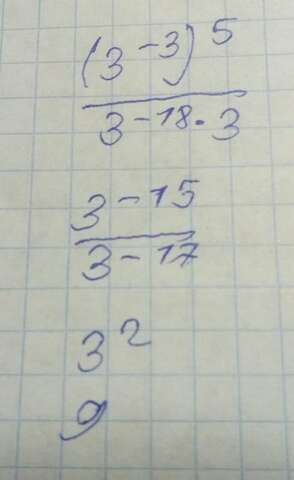 (3⁻³)⁵
3⁻¹⁸·3
3⁻¹⁵
3⁻¹⁷
3²
9